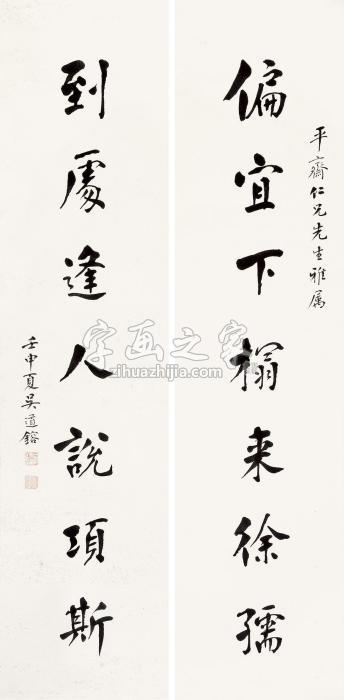 平齋仁兄先生雅属
偏宜下榻来徐孺
到處逢人說項斯
壬申夏吴道鎔
字画之家
zihuazhijia.com